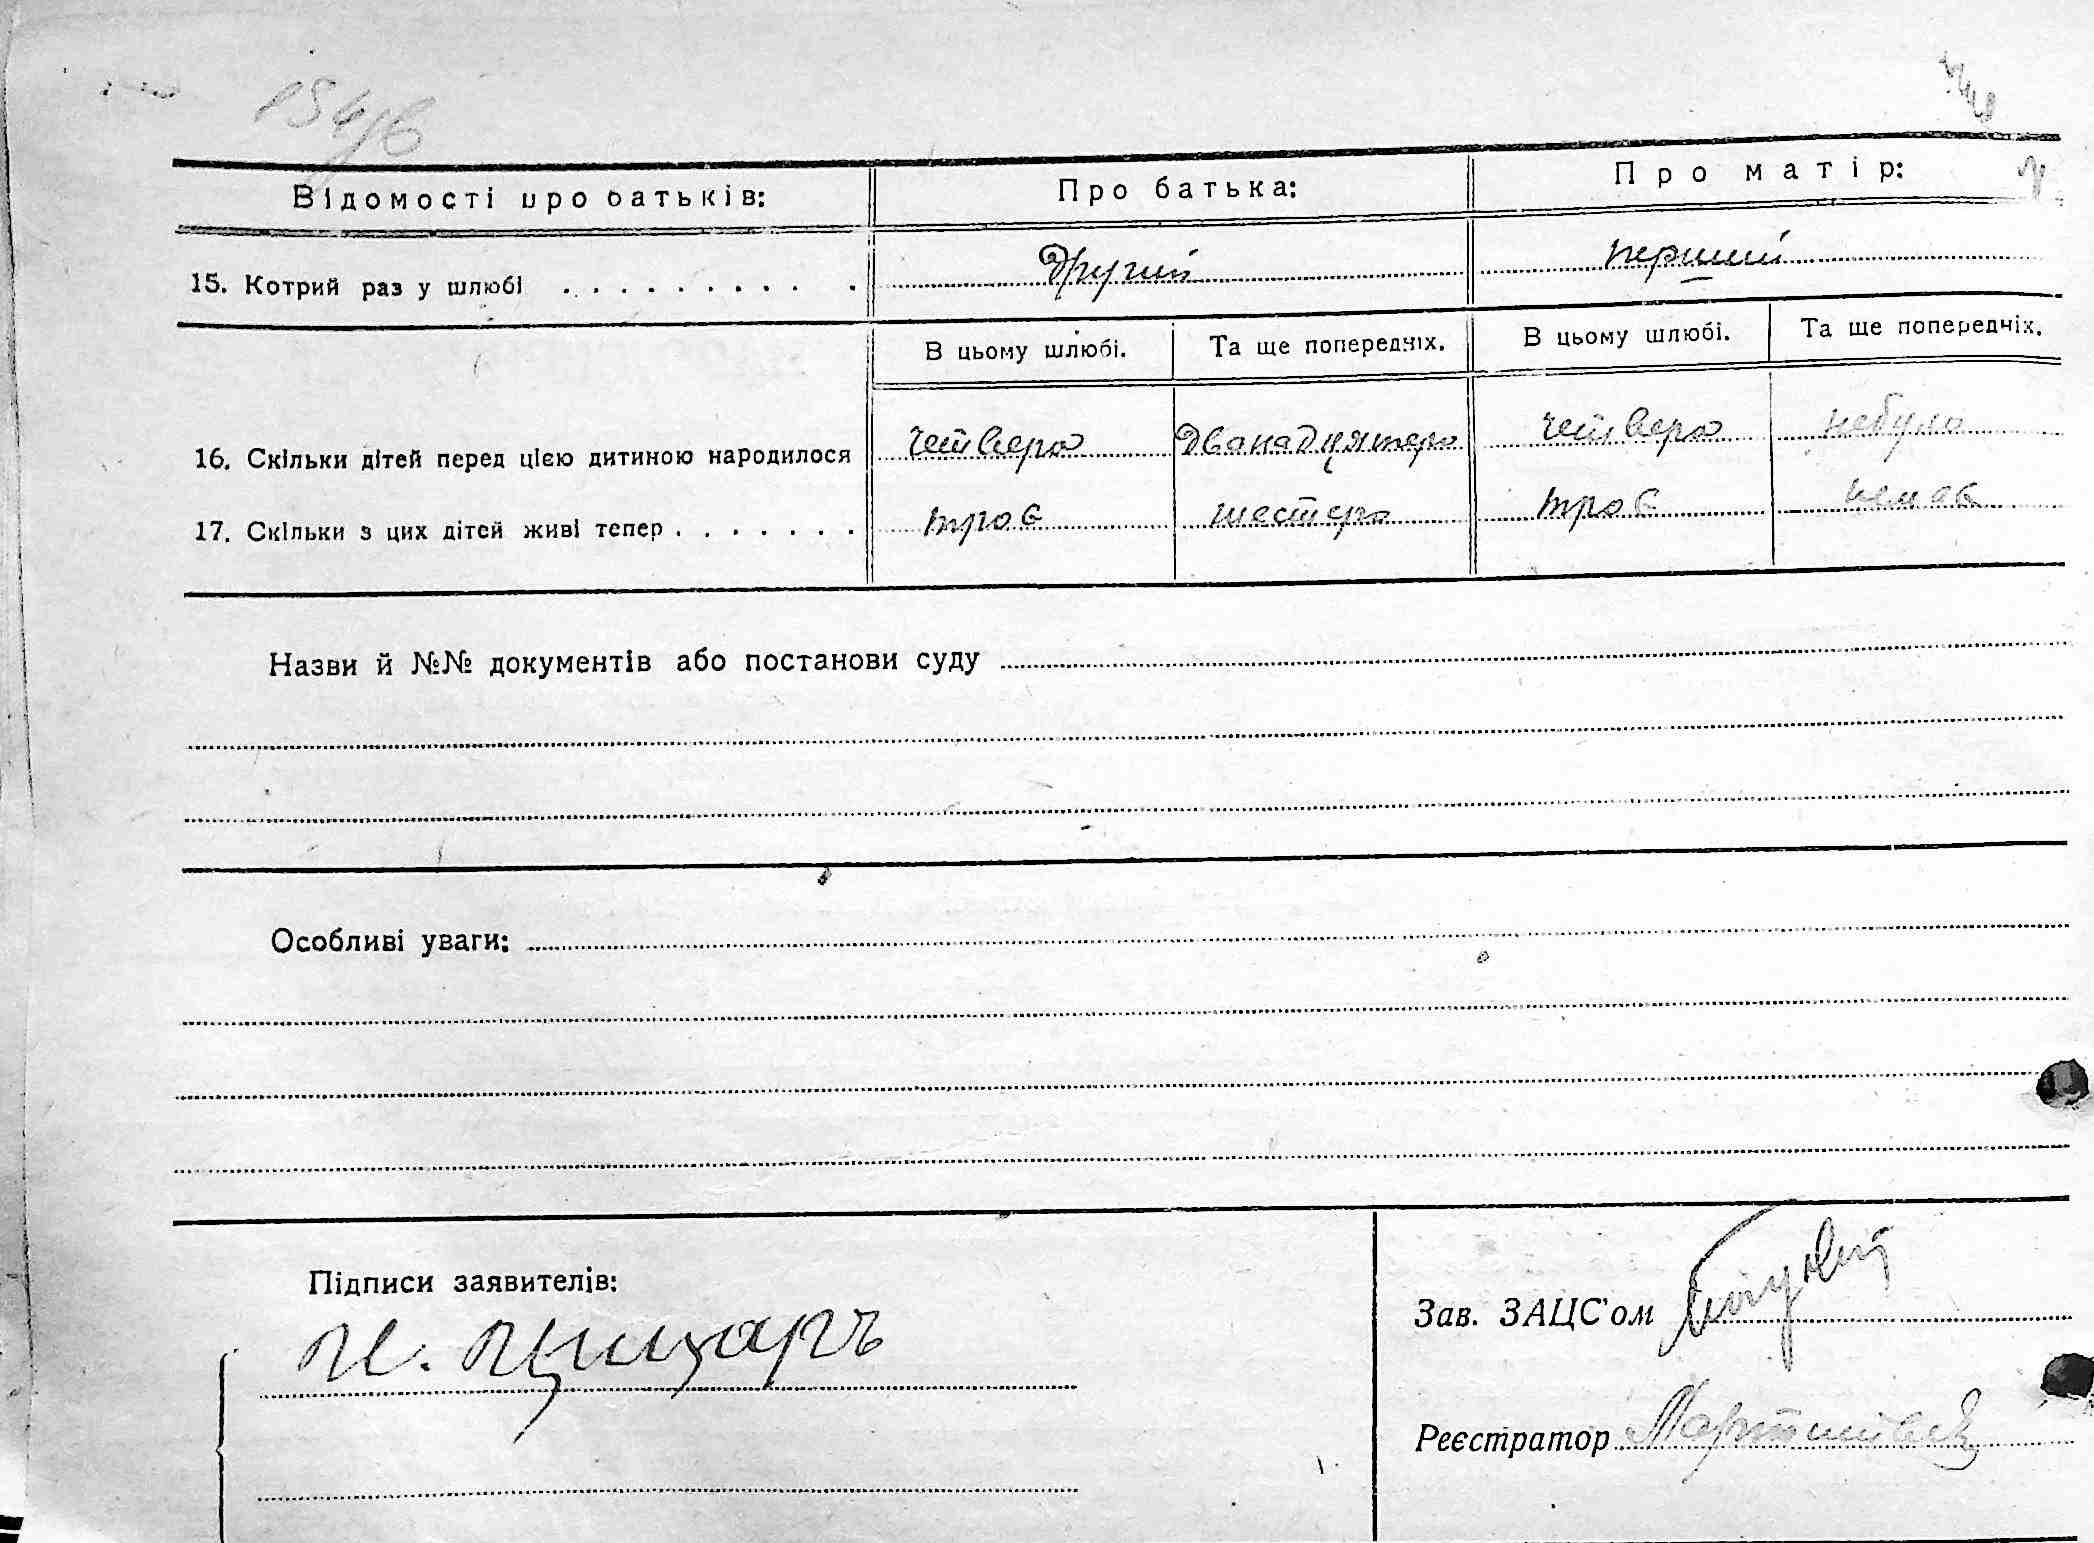 154/в
Відомості про батьків: Про батька: Про матір:
15. Котрий раз у шлюбі . . . . . . . . . . другий перший
В цьому шлюбі. Та ще попередніх. В цьому шлюбі. Та ще попередніх.
16. Скільки дітей перед цією дитиною народилося четверо дванадцятеро четверо небуло
17. Скільки з цих дітей живі тепер . . . . . . . троє шестеро троє немає
Назви й №№ документів або постанови суду
Особливі уваги:
Підписи заявителів:
Зав. ЗАЦС'ом
Реєстратор